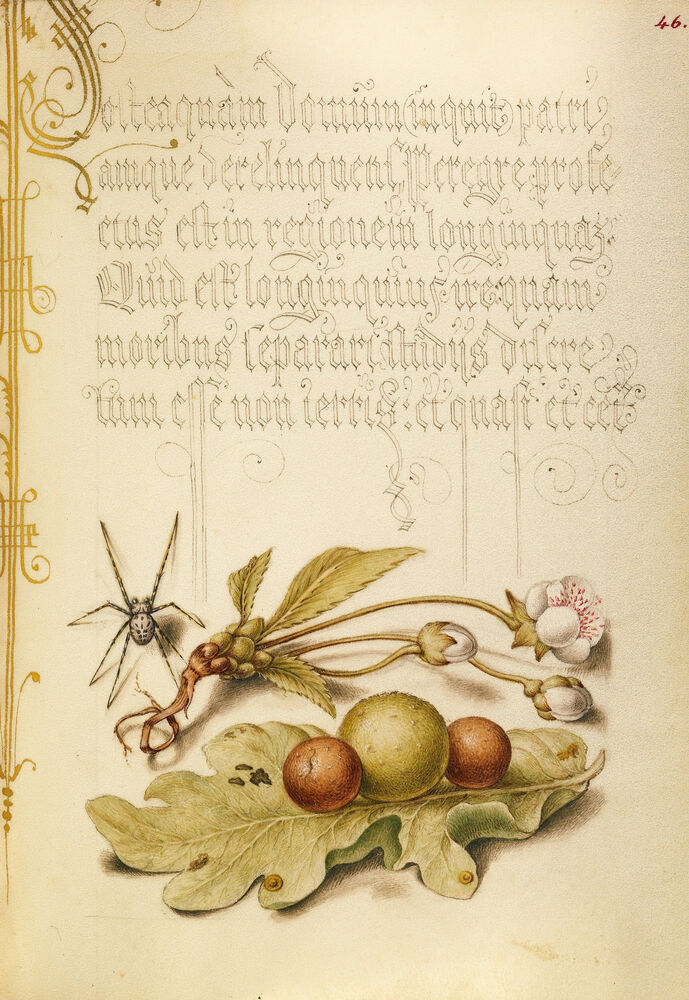 46.
osteaquàm Domum (inquit) patri,
amque derelinquens, Peregre profe-
ctus est in regionem longinquaz.
Quid est longinquius, nequam
moribus separari, studijs discre,
tum esse non terris: et quasi et cet